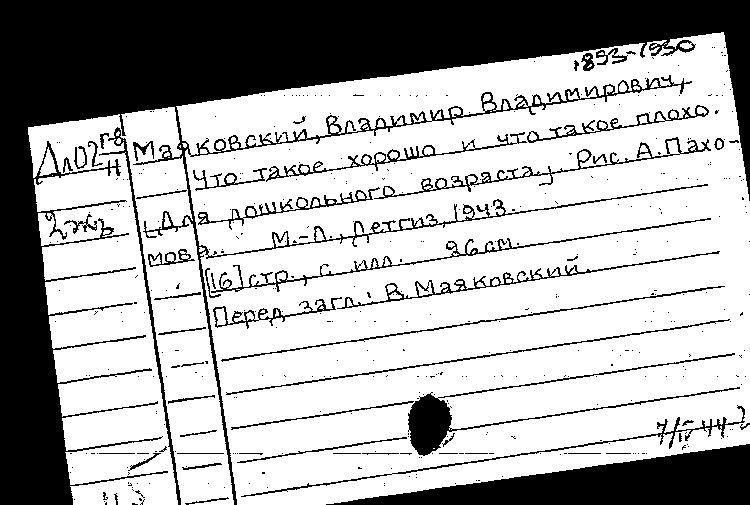 1893-1930
Маяковский, Владимир Владимирович,
Что такое хорошо и что такое плохо.
[Для дошкольного возраста.] Рис. А. Пахо-
мова. М.-Л., Детгиз, 1943.
[16] стр., с илл. 26 см.
Перед загл.: В. Маяковский.
Дл02 г-8
Н
2 экз
7/IV 44